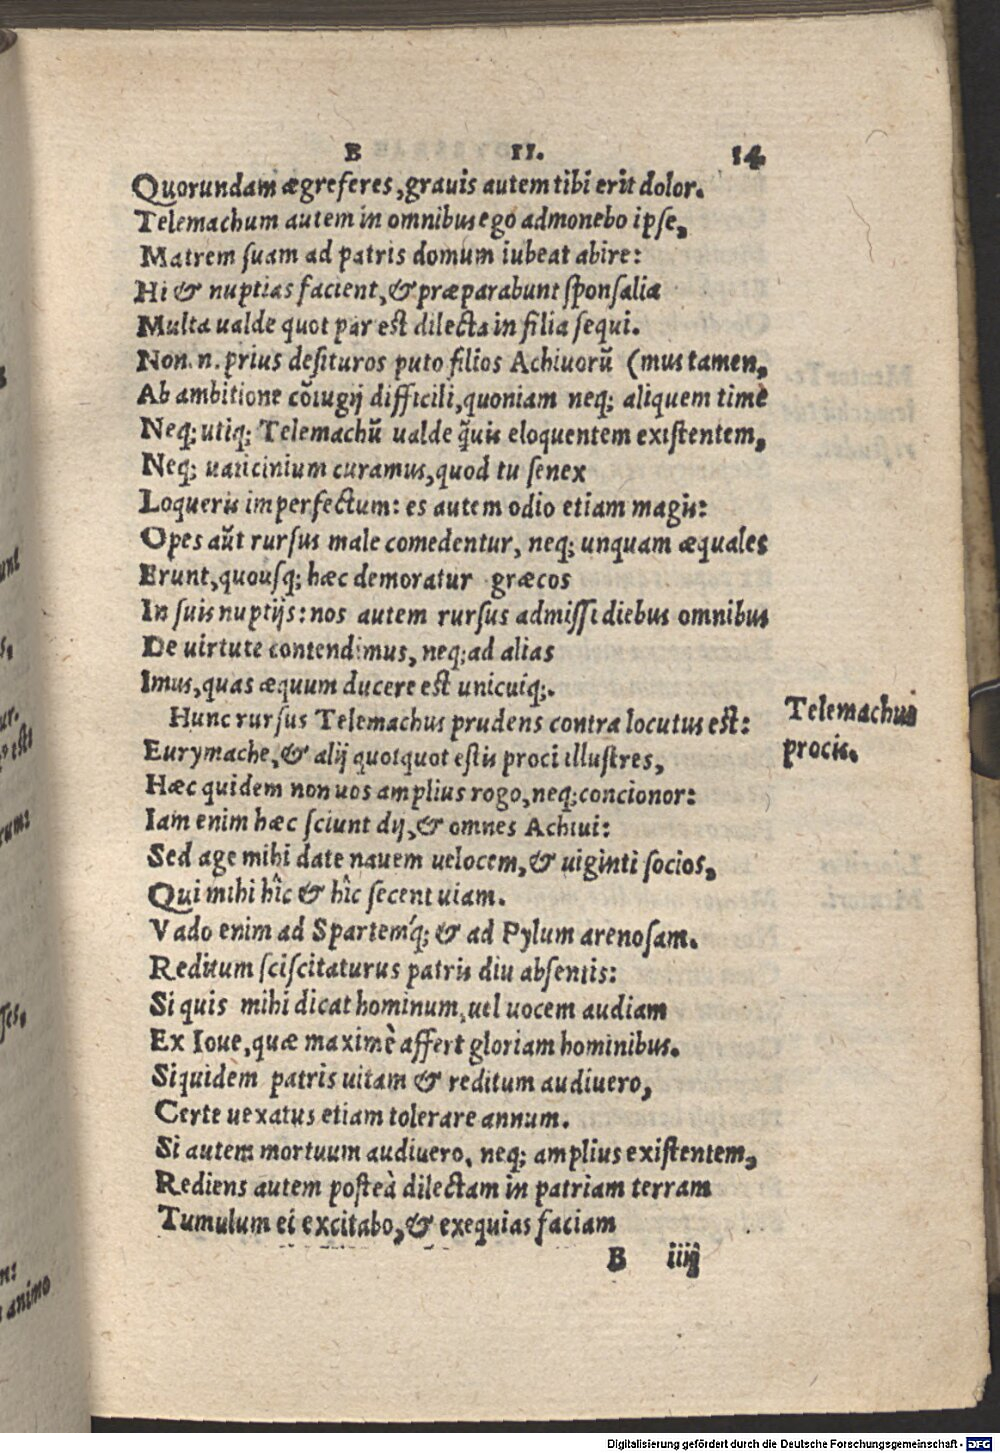 B II. 14
Quorundam ægre feres, grauis autem tibi erit dolor.
Telemachum autem in omnibus ego admonebo ipse,
Matrem suam ad patris domum iubeat abire:
Hi & nuptias facient, & præparabunt sponsalia
Multa ualde quot par est dilecta in filia sequi.
Non. n. prius desituros puto filios Achiuorũ (mus tamen,
Ab ambitione cõiugij difficili, quoniam neq; aliquem time
Neq; utiq; Telemachũ ualde q̃uis eloquentem existentem,
Neq; uaticinium curamus, quod tu senex
Loqueris imperfectum: es autem odio etiam magis:
Opes aũt rursus male comedentur, neq; unquam æquales
Erunt, quousq; hæc demoratur græcos
In suis nuptijs: nos autem rursus admissi diebus omnibus
De uirtute contendimus, neq; ad alias
Imus, quas æquum ducere est unicuiq;.
Hunc rursus Telemachus prudens contra locutus est:
Telemachus
procis.
Eurymache, & alij quotquot estis proci illustres,
Hæc quidem non uos amplius rogo, neq; concionor:
Iam enim hæc sciunt dij, & omnes Achiui:
Sed age mihi date nauem uelocem, & uiginti socios,
Qui mihi hîc & hîc secent uiam.
Vado enim ad Spartemq́; & ad Pylum arenosam.
Reditum sciscitaturus patris diu absentis:
Si quis mihi dicat hominum, uel uocem audiam
Ex Ioue, quæ maximè affert gloriam hominibus.
Siquidem patris uitam & reditum audiuero,
Certe uexatus etiam tolerare annum.
Si autem mortuum audiuero, neq; amplius existentem,
Rediens autem posteà dilectam in patriam terram
Tumulum ei excitabo, & exequias faciam
B iiij
animo
Digitalisierung gefördert durch die Deutsche Forschungsgemeinschaft - DFG